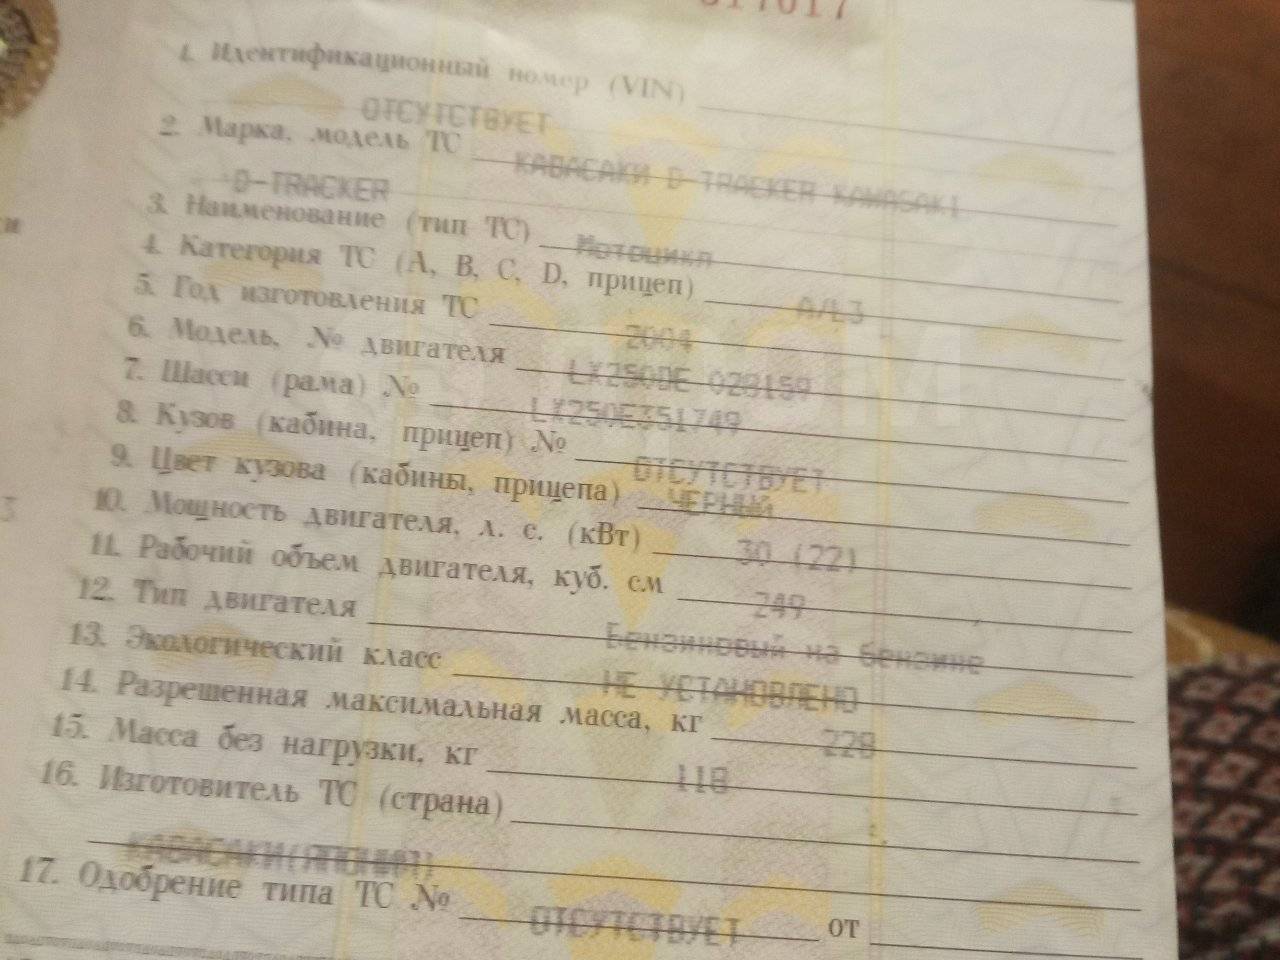 1. Идентификационный номер (VIN)
ОТСУТСТВУЕТ
2. Марка, модель ТС КАВАСАКИ D-TRACKER KAWASAKI
D-TRACKER
3. Наименование (тип ТС) Мотоцикл
4. Категория ТС (A, B, C, D, прицеп) A/L3
5. Год изготовления ТС 2004
6. Модель, № двигателя LX250DE 028159
7. Шасси (рама) № LX250E351749
8. Кузов (кабина, прицеп) № ОТСУТСТВУЕТ
9. Цвет кузова (кабины, прицепа) ЧЕРНЫЙ
10. Мощность двигателя, л. с. (кВт) 30 (22)
11. Рабочий объем двигателя, куб. см 249
12. Тип двигателя Бензиновый на бензине
13. Экологический класс НЕ УСТАНОВЛЕНО
14. Разрешенная максимальная масса, кг 228
15. Масса без нагрузки, кг 118
16. Изготовитель ТС (страна)
КАВАСАКИ(ЯПОНИЯ)
17. Одобрение типа ТС № ОТСУТСТВУЕТ от